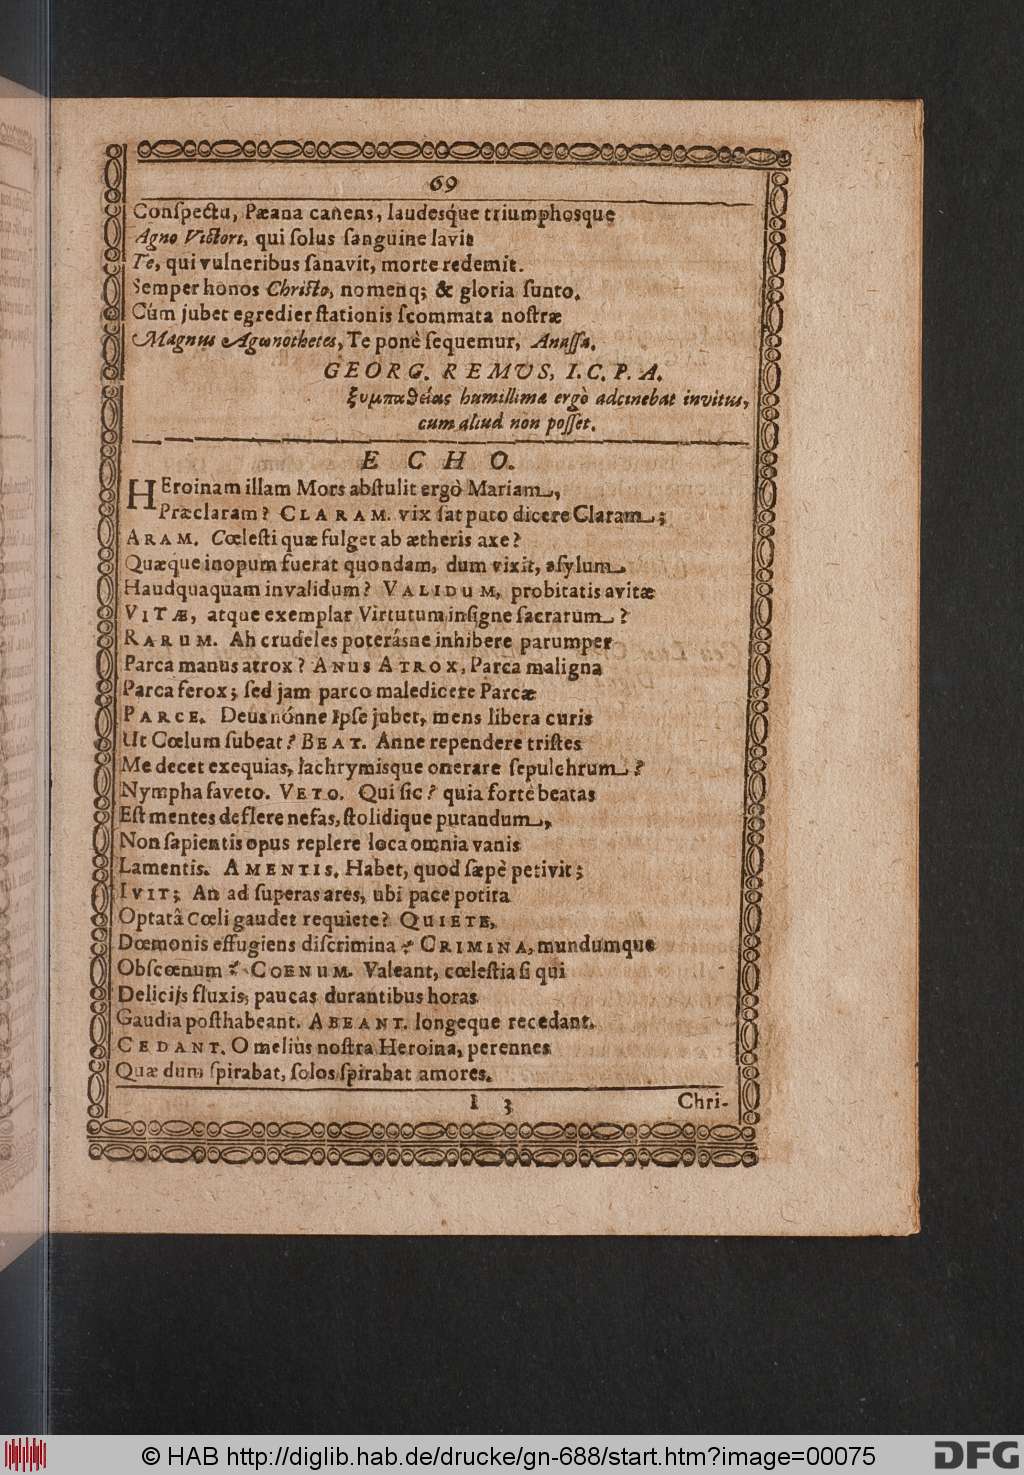 69
Conſpectu, Pæana canens, laudesq́ue triumphosque
Agno Victori, qui ſolus ſanguine lavit
Te, qui vulneribus ſanavit, morte redemit.
Semper honos Chriſto, nomenq; & gloria ſunto.
Cúm jubet egredier ſtationis ſcommata noſtræ
Magnus Agωnothetes, Te ponè ſequemur, Anaſſa.
GEORG. REMUS, I. C. P. A.
ξυμπαθείας humillima ergò adcinebat invitus,
cum aliud non poſſet.
ECHO.
HEroinam illam Mors abſtulit ergò Mariam,
Præclaram? CLARAM. vix ſat puto dicere Claram;
ARAM. Cœleſti quæ fulget ab ætheris axe?
Quæque inopum fuerat quondam, dum vixit, aſylum.
Haudquaquam invalidum? VALIDUM, probitatis avitæ
VITÆ, atque exemplar Virtutum inſigne ſacrarum?
RARUM. Ah crudeles poterásne inhibere parumper
Parca manus atrox? ANUS ATROX, Parca maligna
Parca ferox; ſed jam parco maledicere Parcæ
PARCE. Deus nónne Ipſe jubet, mens libera curis
Ut Cœlum ſubeat? BEAT. Anne rependere triſtes
Me decet exequias, lachrymisque onerare ſepulchrum?
Nympha faveto. VETO. Qui ſic? quia fortè beatas
Eſt mentes deflere nefas, ſtolidique putandum,
Non ſapientis opus replere loca omnia vanis
Lamentis. AMENTIS. Habet, quod ſæpè petivit;
IVIT; An ad ſuperas ares, ubi pace potita
Optatâ Cœli gaudet requiete? QUIETE,
Dœmonis effugiens diſcrimina? CRIMINA, mundumque
Obſcœnum? COENUM. Valeant, cœleſtia ſi qui
Delicijs fluxis, paucas durantibus horas
Gaudia poſthabeant. ABEANT. longeque recedant.
CEDANT. O meliùs noſtra Heroina, perennes
Quæ dum ſpirabat, ſolos ſpirabat amores.
I 3 Chri-
© HAB http://diglib.hab.de/drucke/gn-688/start.htm?image=00075
DFG